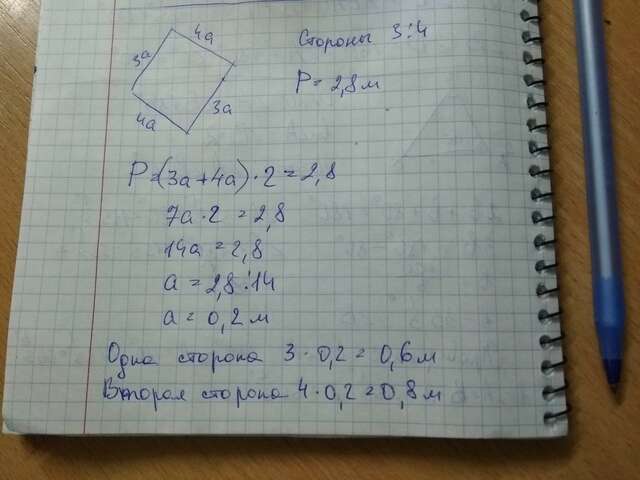 4a
3a
Стороны 3:4
P = 2,8 м
4a
3a
P = (3a + 4a) · 2 = 2,8
7a · 2 = 2,8
14a = 2,8
a = 2,8 : 14
a = 0,2 м
Одна сторона 3 · 0,2 = 0,6 м
Вторая сторона 4 · 0,2 = 0,8 м